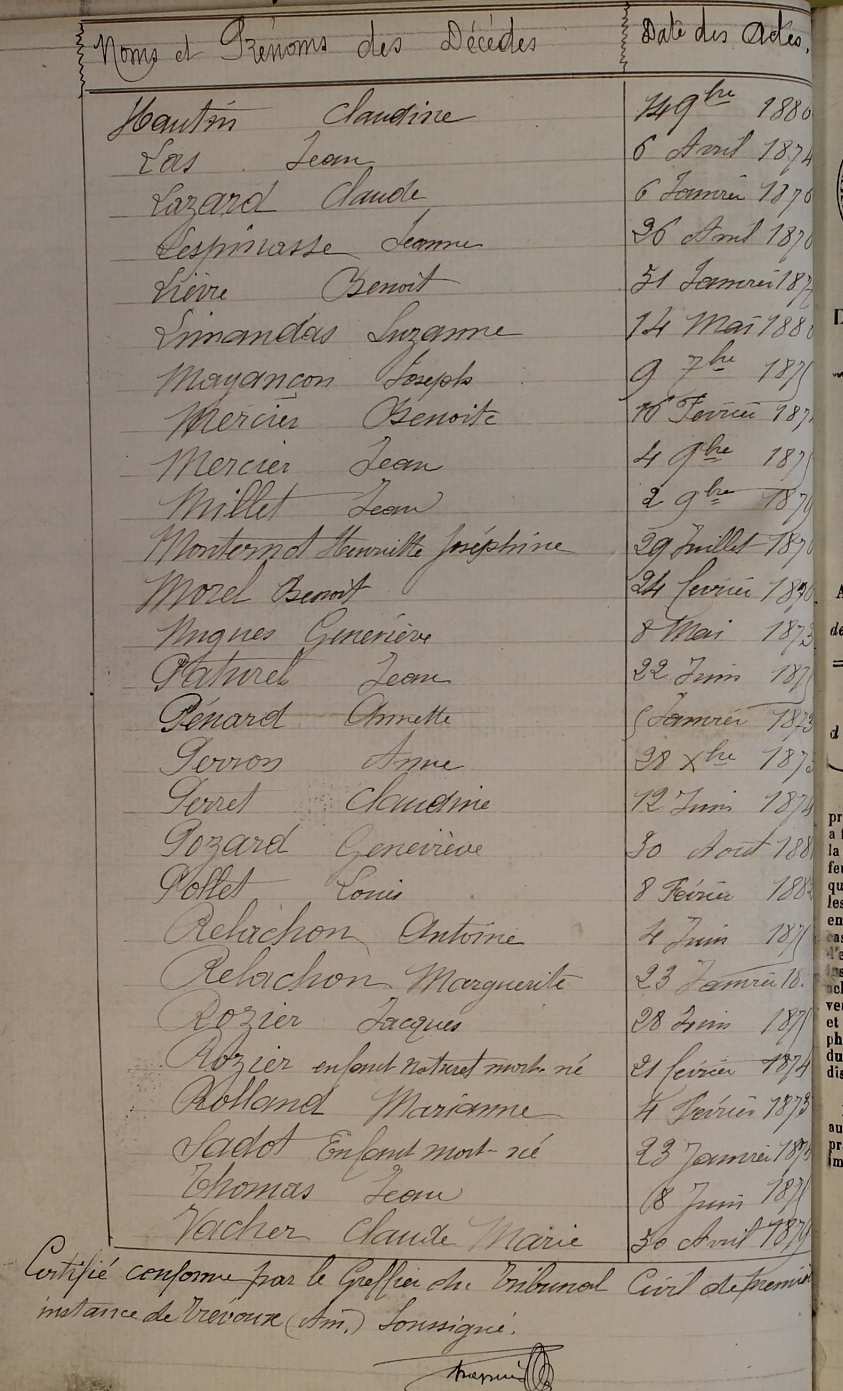 Noms et Prénoms des Décédés Date des Actes.
Hautin Claudine 14 9bre 1880
Las Jean 6 Avril 1874
Lazard Claude 6 Janvier 1876
Lespinasse Jeanne 26 Avril 187
Lièvre Benoit 31 Janvier 187
Limandas Suzanne 14 Mai 1880
Mayançon Joseph 9 7bre 1875
Mercier Benoite 16 Fevrier 187
Mercier Jean 4 9bre 1875
Millet Jean 2 9bre 1879
Monternot Henriette Joséphine 29 Juillet 1870
Morel Benoit 24 fevrier 1876
Nugues Geneviève 8 Mai 1873
Paturel Jean 22 Juin 1875
Pénard Annette 5 Janvier 1873
Perron Anne 28 Xbre 1873
Perret Claudine 12 Juin 1874
Pozard Geneviève 30 Aout 188
Pollet Louis 8 Février 1882
Relachon Antoine 4 Juin 1875
Relachon Marguerite 23 Janvier 18
Rozier Jacques 28 Juin 1875
Rozier enfant naturel mort-né 21 fevrier 1874
Rolland Marianne 4 Février 1873
Sadot Enfant mort-né 23 Janvier 187
Thomas Jean 8 Juin 1875
Vacher Claude Marie 30 Avril 1879
Certifié conforme par le Greffier du Tribunal Civil de premier
instance de Trévoux (Ain.) Soussigné.